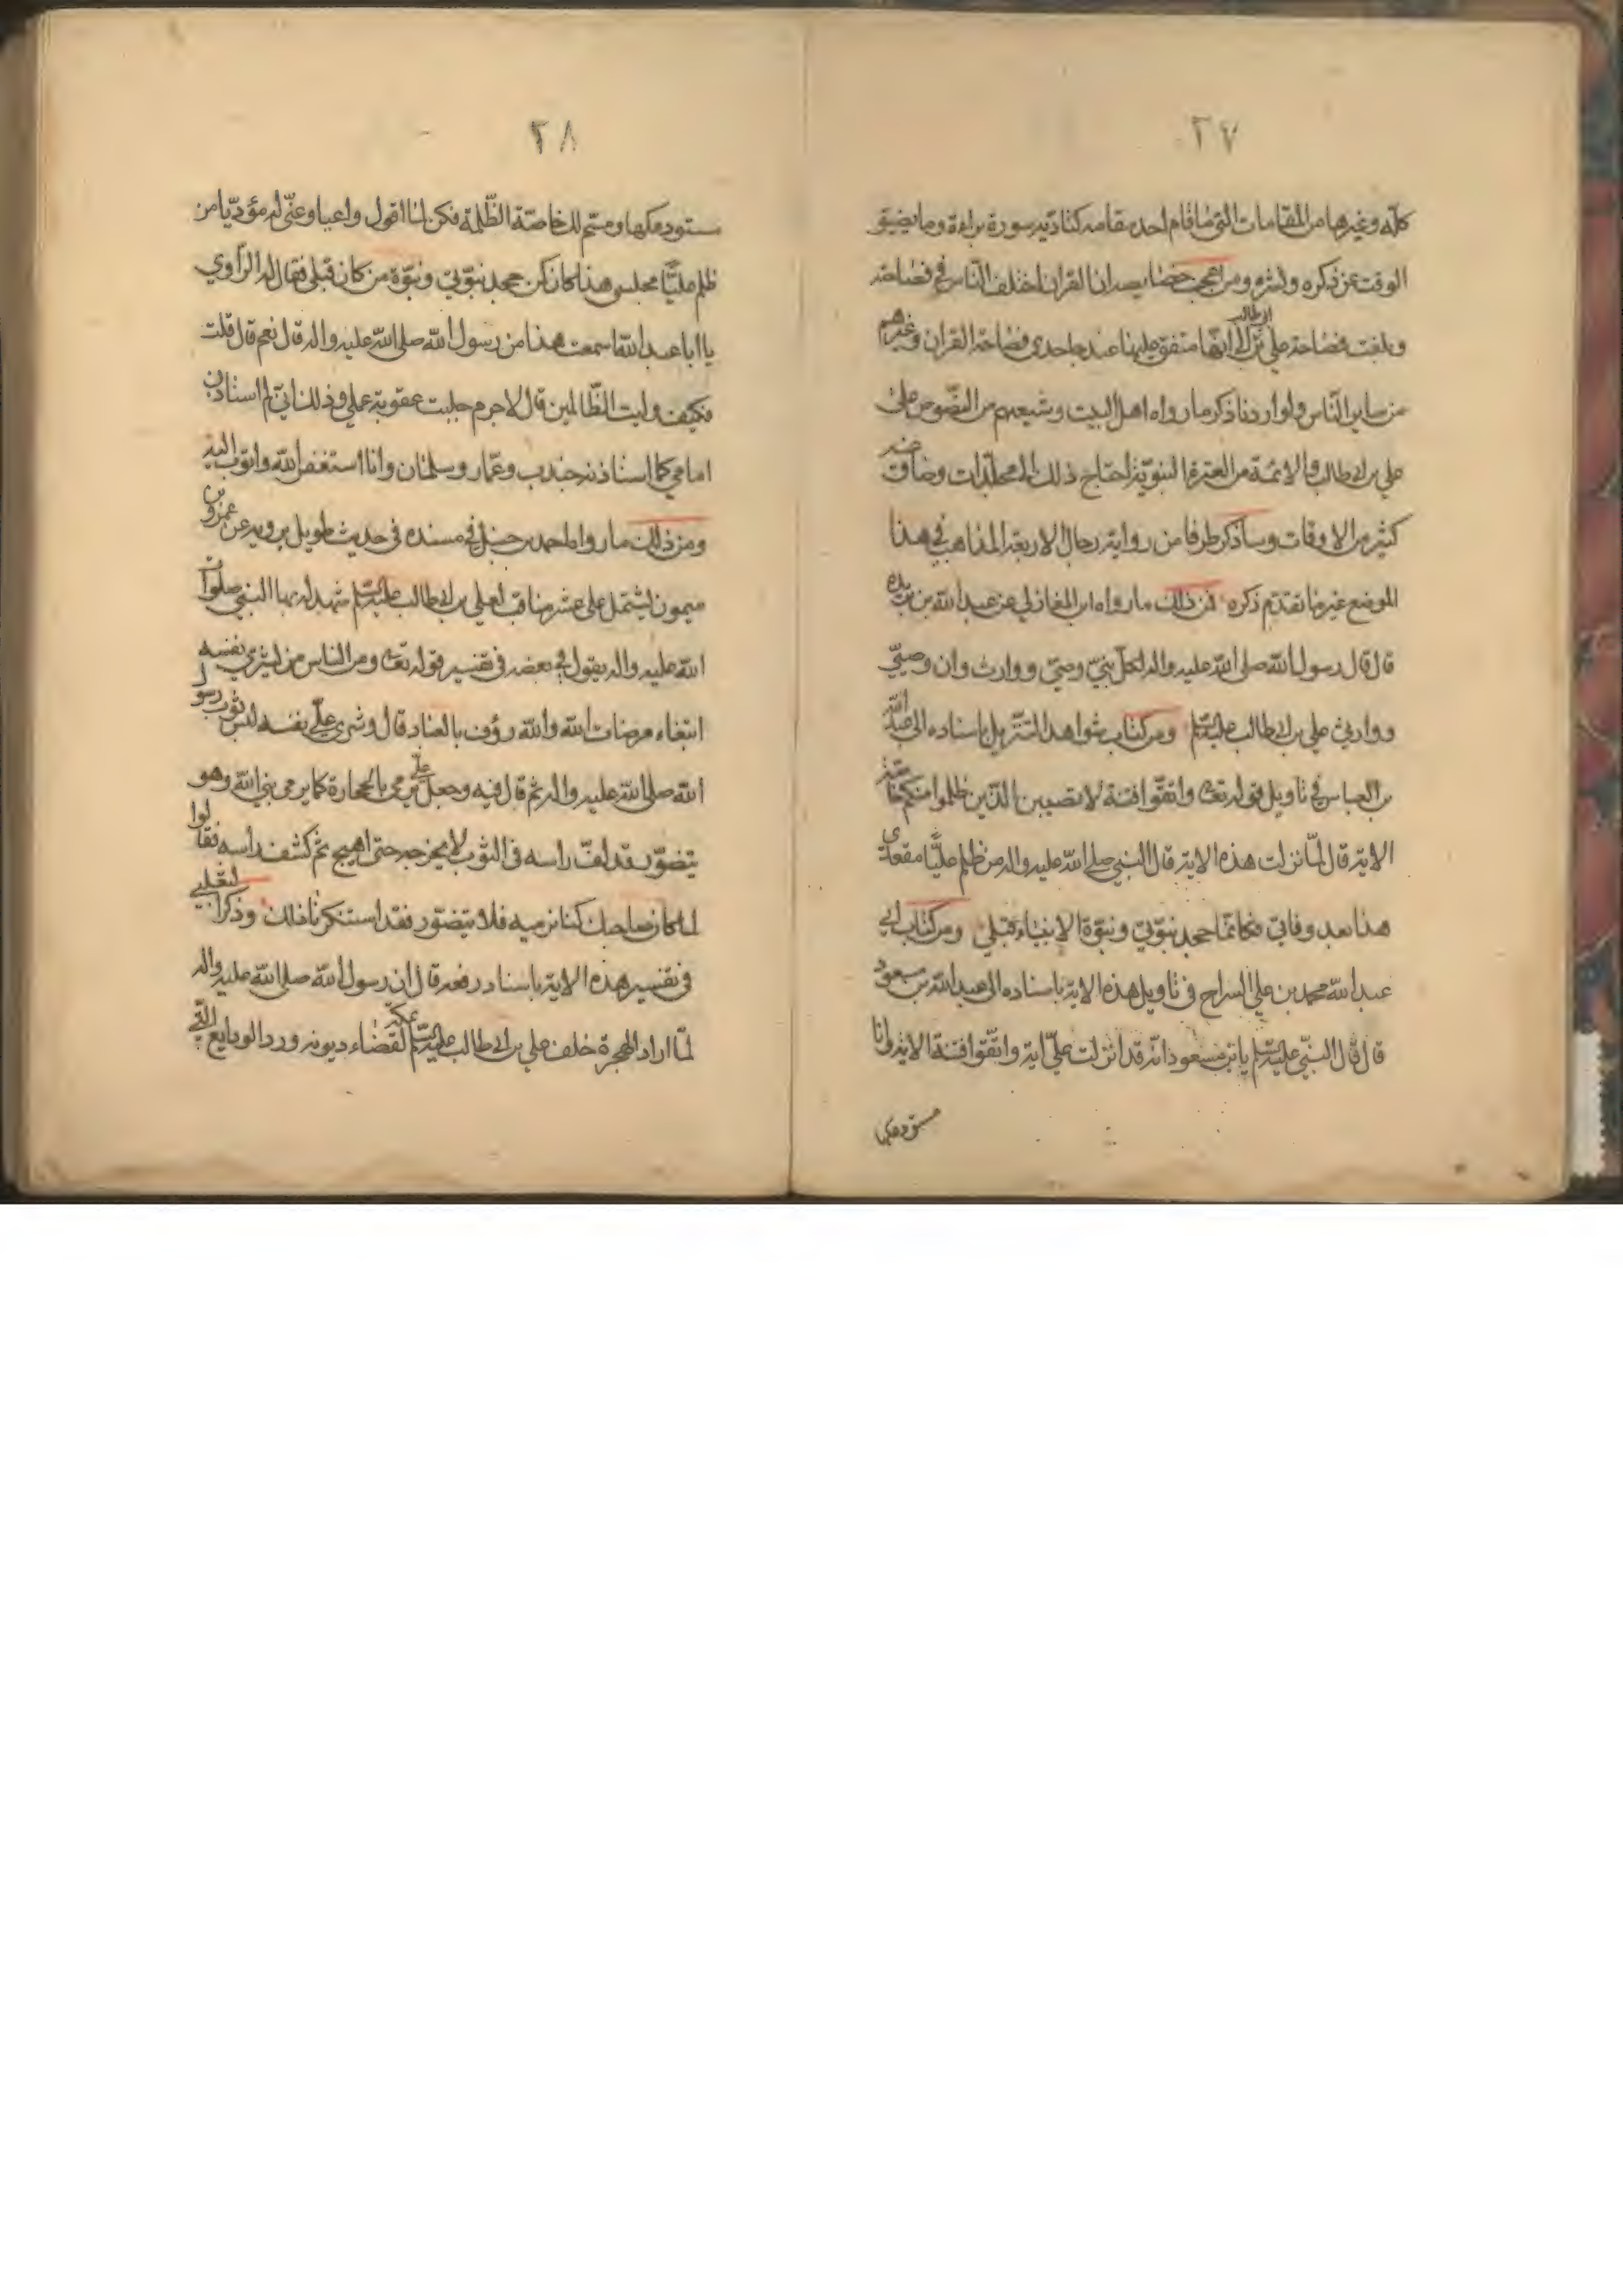 ٢٧
كله وغيرها من المقامات التي ما قام احد مقامه كتاديه سورة براءة وما يضيق
الوقت عن ذكره ونشره ومن اعجب خصايصه ان القران اختلف الناس في فصاحته
وبلغت فصاحة علي بن ابي طالب الى انها متفق عليها عند جاحدي فصاحة القران وغيرهم
من ساير الناس ولو اردنا ذكر ما رواه اهل البيت وشيعهم من النصوص على
علي بن ابي طالب والائمة من العترة النبوية احتاج ذلك الى مجلدات وضاق عنه
كثير من الاوقات وساذكر طرفا من رواية رجال الاربعة المذاهب في هذا
الموضع غير ما تقدم ذكره فمن ذلك ما رواه ابن المغازلي عن عبد الله بن بريده
قال قال رسول الله صلى الله عليه واله لكل نبي وصي ووارث وان وصيي
ووارثي علي بن ابي طالب عليه السلم ومن كتاب شواهد التنزيل باسناده الى عبد الله
بن العباس في تاويل قوله تعالى واتقوا فتنة لا تصيبن الذين ظلموا منكم خاصة
الاية قال لما نزلت هذه الاية قال النبي صلى الله عليه واله من ظلم عليا مقعدي
هذا بعد وفاتي فكانما جحد نبوتي ونبوة الانبياء قبلي ومن كتاب ابي
عبد الله محمد بن علي السراج في تاويل هذه الاية باسناده الى عبد الله بن مسعود
قال قال النبي عليه السلم يا بن مسعود انه قد انزلت علي اية واتقوا فتنة الاية وانا
مستودعكها
٢٨
مستودعكها ومسم لك خاصة الظلمة فكن لما اقول واعيا وعني له مؤديا من
ظلم عليا مجلسي هذا كان كمن جحد نبوتي ونبوة من كان قبلي فقال له الراوي
يا ابا عبد الله اسمعت هذا من رسول الله صلى الله عليه واله قال نعم قال قلت
فكيف وليت الظالمين قال لا جرم جلبت عقوبة عملي وذلك اني لم استاذن
امامي كما استاذنه جندب وعمار وسلمان وانا استغفر الله واتوب اليه
ومن ذلك ما رواه احمد بن حنبل في مسنده في حديث طويل يرويه عن عمرو بن
ميمون يشتمل على عشر مناقب لعلي بن ابي طالب عليه السلم شهد له بها النبي صلوات
الله عليه واله يقول في بعضه في تفسير قوله تعالى ومن الناس من يشري نفسه
ابتغاء مرضات الله والله رؤف بالعباد قال وشرى علي نفسه لبس ثوب رسول
الله صلى الله عليه واله ثم قال فيه وجعل علي يرمى بالحجارة كما يرمى نبي الله وهو
يتضور قد لف راسه في الثوب لا يخرجه حتى اصبح ثم كشف راسه فقالوا
لما كان صاحبك كنا نرميه فلا يتضور فقد استنكرنا ذلك وذكر الثعلبي
في تفسير هذه الاية باسناد رفعه قال ان رسول الله صلى الله عليه واله
لما اراد الهجرة خلف علي بن ابي طالب عليه السلم بمكة لقضاء ديونه ورد الودايع التي